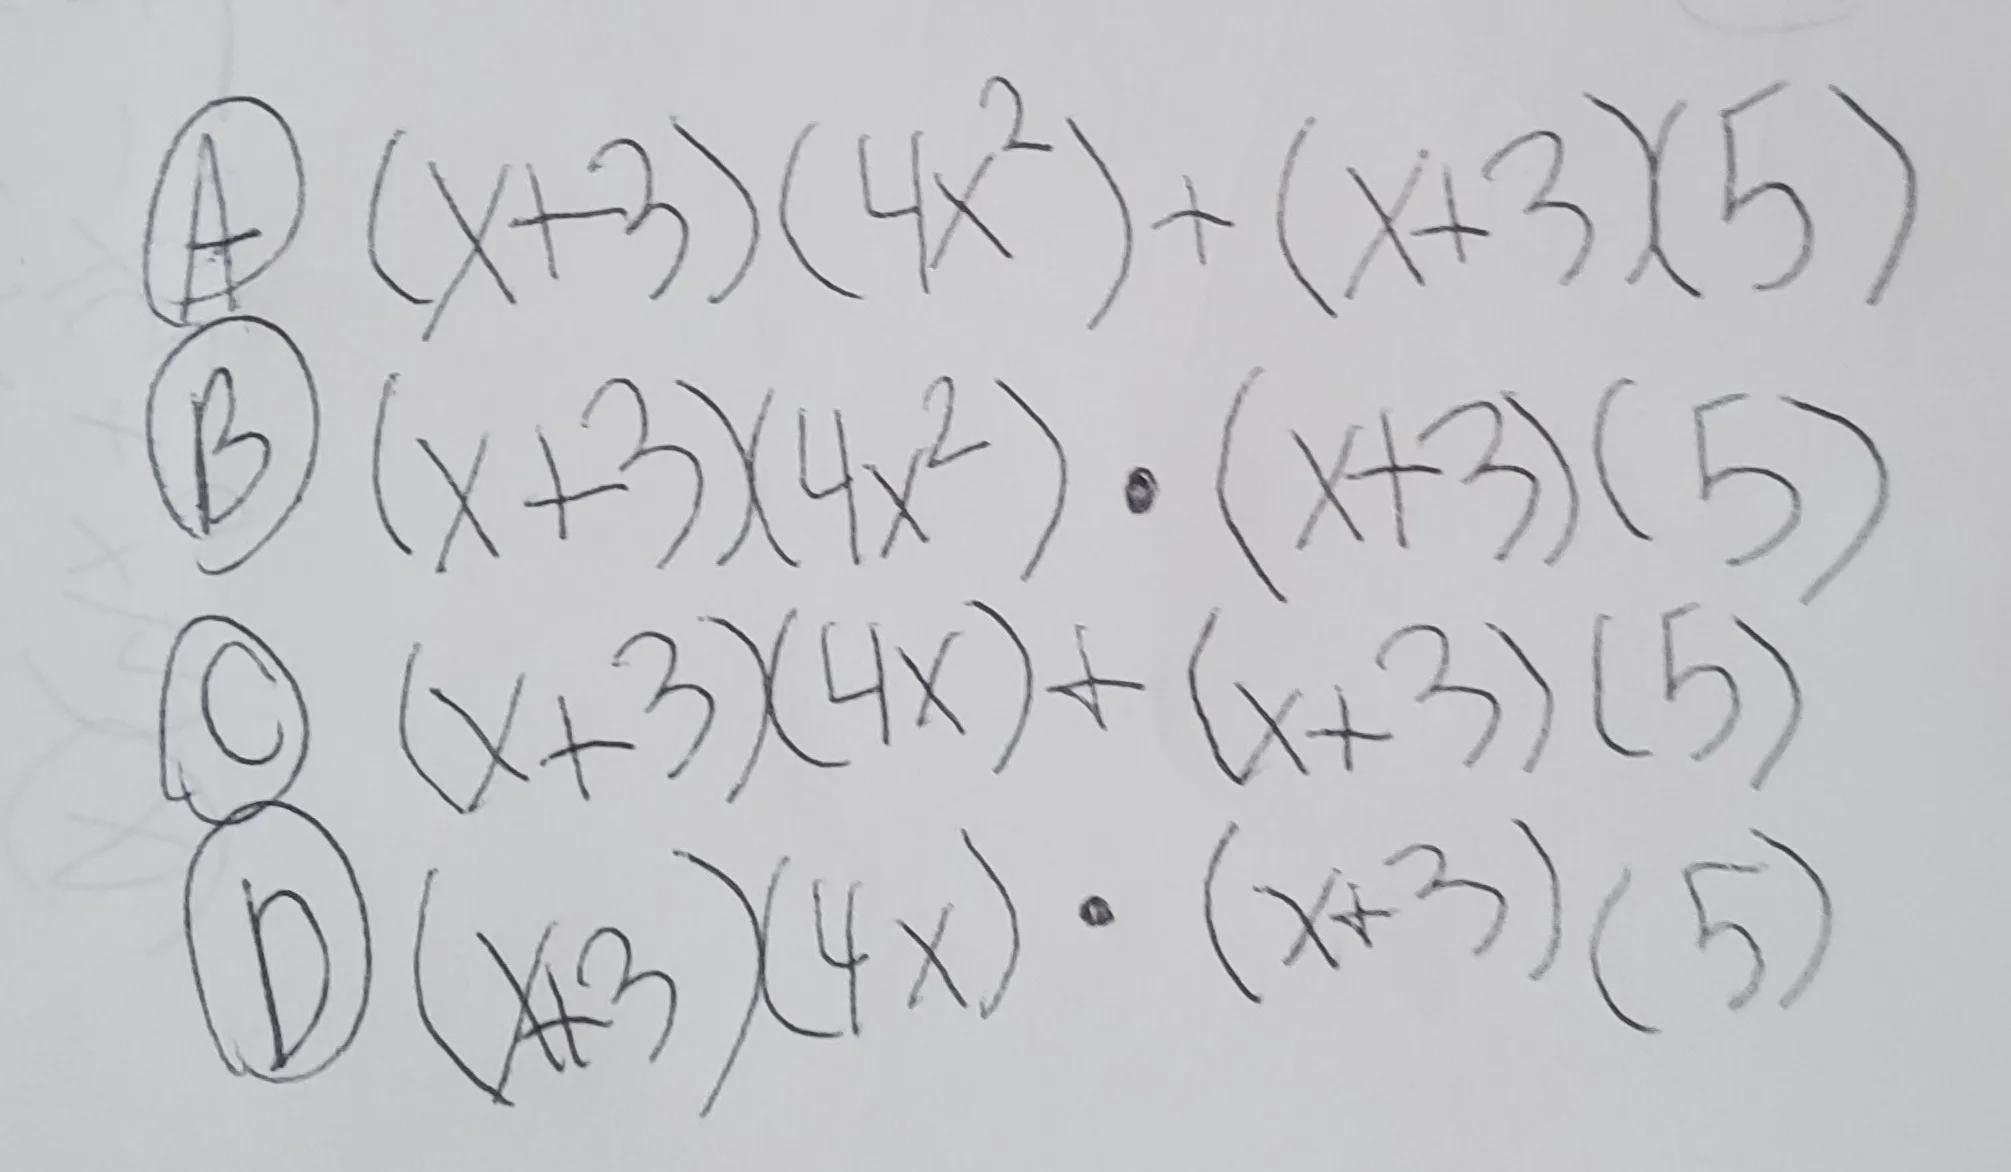 A (x+3)(4x²)+(x+3)(5)
B (x+3)(4x²)•(x+3)(5)
C (x+3)(4x)+(x+3)(5)
D (x+3)(4x)•(x+3)(5)